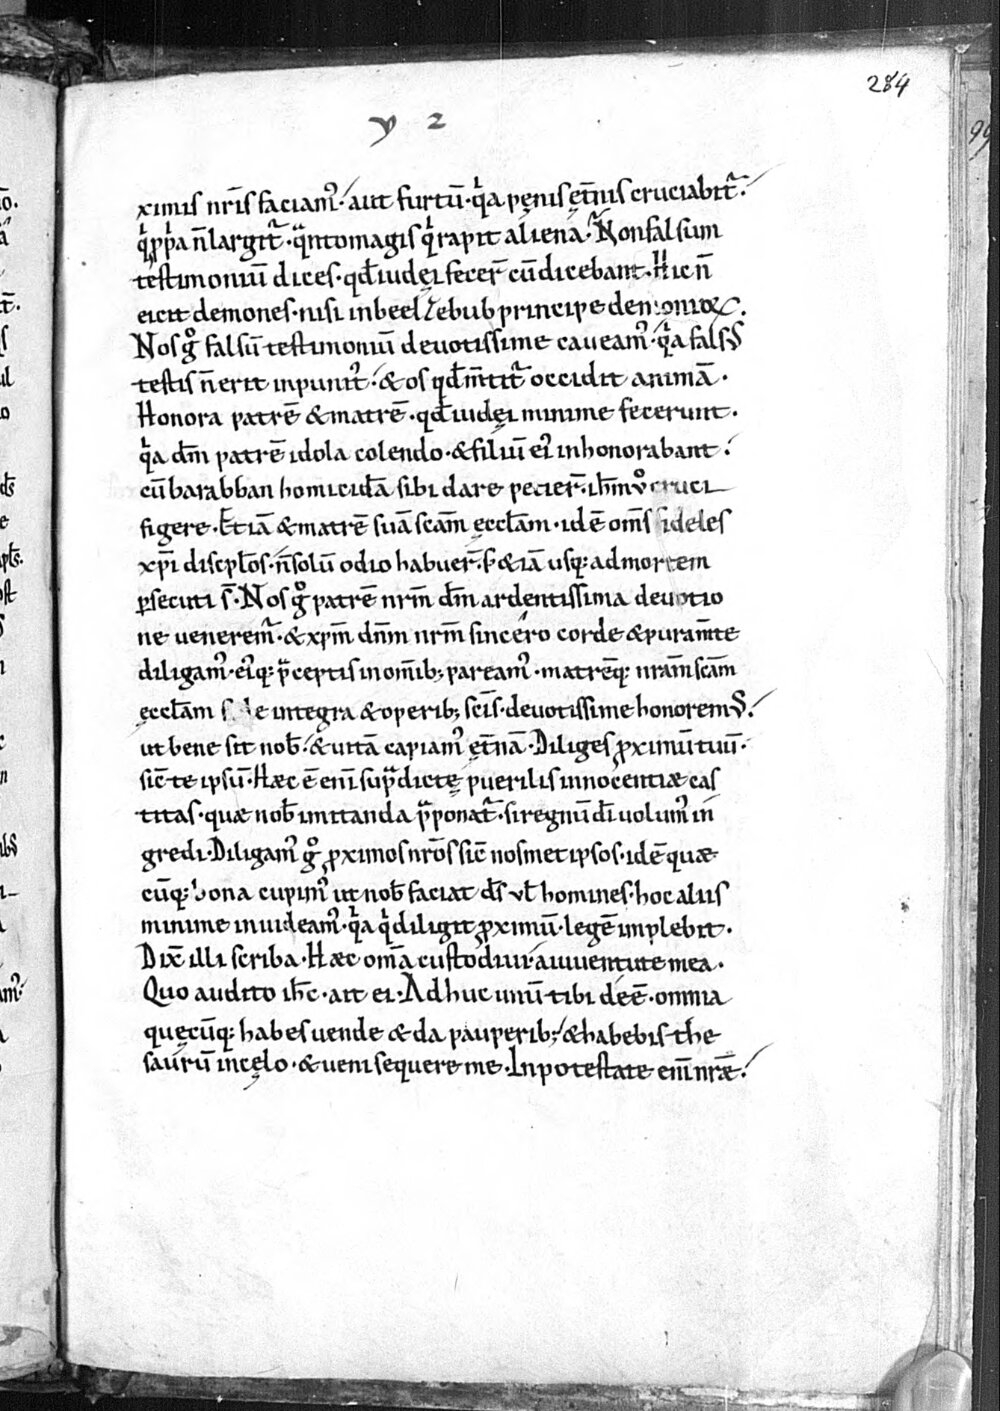 284
y 2
ximis nr̄is faciam᷒. aut furtū. qͥa penis et̄nis cruciabit᷑.
qͥ ꝓpͥa n̄ largit᷑. qͣntomagis qͥ rapit aliena. Non falsum
testimoniū dices. qd̄ iudęi fecer̄ cū dicebant. Hic n̄
eicit demones. nisi in beelzebub principe demonioꝝ.
Nos gͦ falsū testimoniū deuotissime caueam᷒. qͥa falsus
testis n̄ erit inpunit᷒. & os qd̄ m̄tit᷑ occidit animā.
Honora patrē & matrē. qd̄ iudęi minime fecerunt.
qͥa dm̄ patrē idola colendo. & filiū ei᷒ inhonorabant.
cū barabban homicidā sibi dare petier̄. ih̄m vͦ cruci
figere. Etiā & matrē suā scām ęccl̄am. idē om̄s fideles
xp̄i discipl̄os. n̄ solū odio habuer̄. s; & iā usq; ad mortem
ꝑsecuti s̄. Nos gͦ patrē nr̄m dm̄ ardentissima deuotio
ne venerem᷑. & xp̄m dn̄m nr̄m sincero corde & pura m̄te
diligam᷒. ei᷒q; p̄ceptis in om̄ib; paream᷒. matrēq; nr̄am scām
ęccl̄am fide integra & operib; sc̄is. deuotissime honoremus.
ut bene sit nob̄. & uitā capiam᷒ et̄nā. Diliges ꝓximū tuū.
sic̄ te ipsū. Hæc ē eni̅ sup̄dictę puerilis innocentiæ cas
titas. quæ nob̄ imitanda p̄ponat᷑. si regnū dī uolum᷒ in
gredi. Diligam᷒ gͦ ꝓximos nr̄os sic̄ nosmet ipsos. idē quæ
cūq; bona cupim᷒ ut nob̄ faciat ds̄ vl̄ homines. hoc aliis
minime inuideam᷒. qͥa qͥ diligit ꝓximū. legē implebit.
Dix̄ illi scriba. Hæc om̄a custodiui. a iuuentute mea.
Quo audito ih̄c. ait ei. Adhuc unū tibi deē. omnia
quęcūq; habes uende & da pauperib; & habebis the
saurū in cęlo. & ueni sequere me. In potestate eni̅ nr̄æ.